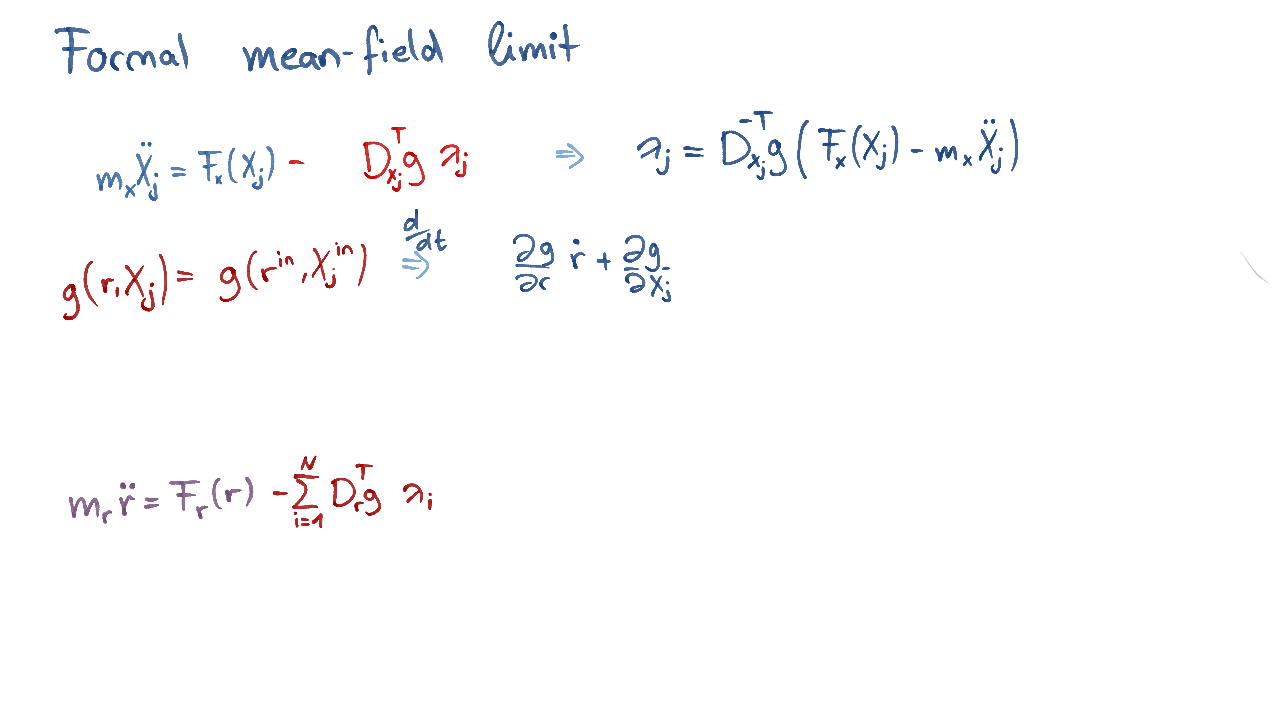 Formal mean-field limit
m_x Ẍ_j = F_x(X_j) - D_{x_j}^T g λ_j ⇒ λ_j = D_{x_j}^{-T} g ( F_x(X_j) - m_x Ẍ_j )
g(r, X_j) = g(r^{in}, X_j^{in}) d/dt ⇒ ∂g/∂r ṙ + ∂g/∂X_j
m_r r̈ = F_r(r) - ∑_{i=1}^N D_r^T g λ_i